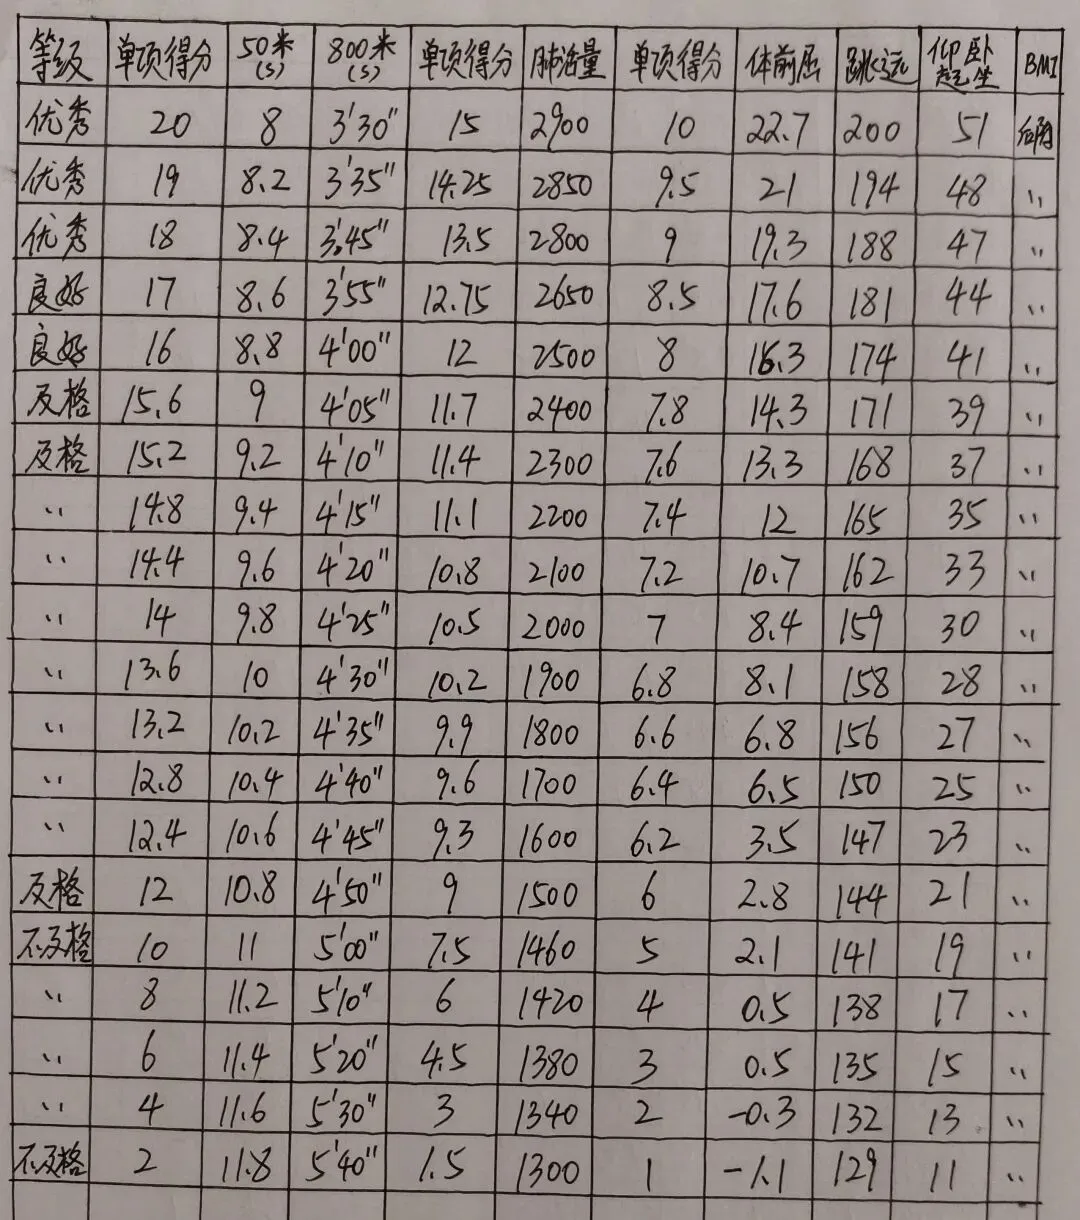 等级 单项得分 50米(s) 800米(s) 单项得分 肺活量 单项得分 体前屈 跳远 仰卧起坐 BMI
优秀 20 8 3'30" 15 2900 10 22.7 200 51
优秀 19 8.2 3'35" 14.25 2850 9.5 21 194 48 ,,
优秀 18 8.4 3'45" 13.5 2800 9 19.3 188 47 ,,
良好 17 8.6 3'55" 12.75 2650 8.5 17.6 181 44 ,,
良好 16 8.8 4'00" 12 2500 8 16.3 174 41 ,,
及格 15.6 9 4'05" 11.7 2400 7.8 14.3 171 39 ,,
及格 15.2 9.2 4'10" 11.4 2300 7.6 13.3 168 37 ,,
,, 14.8 9.4 4'15" 11.1 2200 7.4 12 165 35 ,,
,, 14.4 9.6 4'20" 10.8 2100 7.2 10.7 162 33 ,,
,, 14 9.8 4'25" 10.5 2000 7 8.4 159 30 ,,
,, 13.6 10 4'30" 10.2 1900 6.8 8.1 158 28 ,,
,, 13.2 10.2 4'35" 9.9 1800 6.6 6.8 156 27 ,,
,, 12.8 10.4 4'40" 9.6 1700 6.4 6.5 150 25 ,,
,, 12.4 10.6 4'45" 9.3 1600 6.2 3.5 147 23 ,,
及格 12 10.8 4'50" 9 1500 6 2.8 144 21 ,,
不及格 10 11 5'00" 7.5 1460 5 2.1 141 19 ,,
,, 8 11.2 5'10" 6 1420 4 0.5 138 17 ,,
,, 6 11.4 5'20" 4.5 1380 3 0.5 135 15 ,,
,, 4 11.6 5'30" 3 1340 2 -0.3 132 13 ,,
不及格 2 11.8 5'40" 1.5 1300 1 -1.1 129 11 ,,